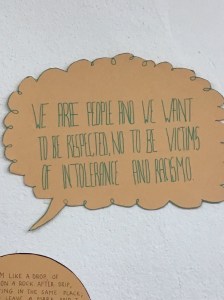 WE ARE PEOPLE AND WE WANT
TO BE RESPECTED, NO TO BE VICTIMS
OF INTOLERANCE AND RACISMO
M LIKE A DROP, OF
ON A ROCK AFTER DRIP,
ING IN THE SAME PLACE,